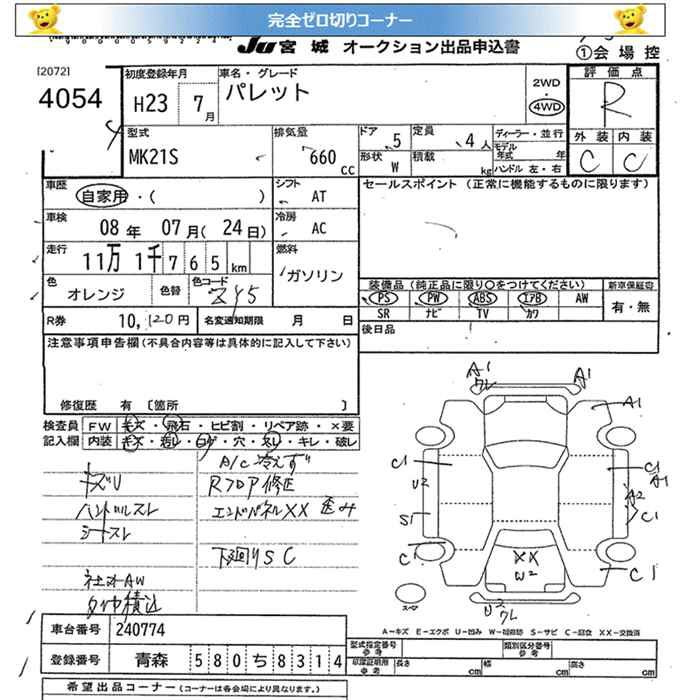 完全ゼロ切りコーナー
JU 宮城 オークション出品申込書
①会場控
[2072]
4054
初度登録年月
H23 7月
車名・グレード
パレット
2WD
4WD
評価点
R
型式
MK21S
排気量
660 cc
ドア 5
定員 4人
形状 W
積載 kg
ディーラー・並行
モデル年式 年
ハンドル 左・右
外装 内装
C C
車歴
自家用・( )
シフト
AT
セールスポイント (正常に機能するものに限ります)
車検
08年 07月(24日)
冷房
AC
走行
11万1千765km
燃料
ガソリン
色 オレンジ
色替
色コード
装備品(純正品に限り○をつけてください)
新車保証書
PS PW ABS エアB AW
有・無
SR ナビ TV カワ
R券 10,120円
名変通知期限 月 日
後日品
注意事項申告欄(不具合内容等は具体的に記入して下さい)
修復歴 有 〔箇所 〕
検査員記入欄
FW キズ・飛石・ヒビ割・リペア跡・×要
内装 キズ・汚レ・コゲ・穴・スレ・キレ・破レ
A/C 冷えず
キズU
Rフロア修正
ハンドルスレ
エンドパネルXX 歪み
シートスレ
下廻りSC
社外AW
タイヤ積込
A1
ワレ
A1
A1
C1
U2
C1
A1
A2
S1
C1
C
XX
W2
C1
U2
ワレ
スペア
A−キズ E−エクボ U−凹み W−補修跡 S−サビ C−腐食 XX−交換済
車台番号 240774
登録番号 青森 580ち8314
型式指定番号 参考
類別区分番号 参考
車庫証明用 参考
長さ cm
幅 cm
高さ cm
希望出品コーナー(コーナーは各会場により異なります。)